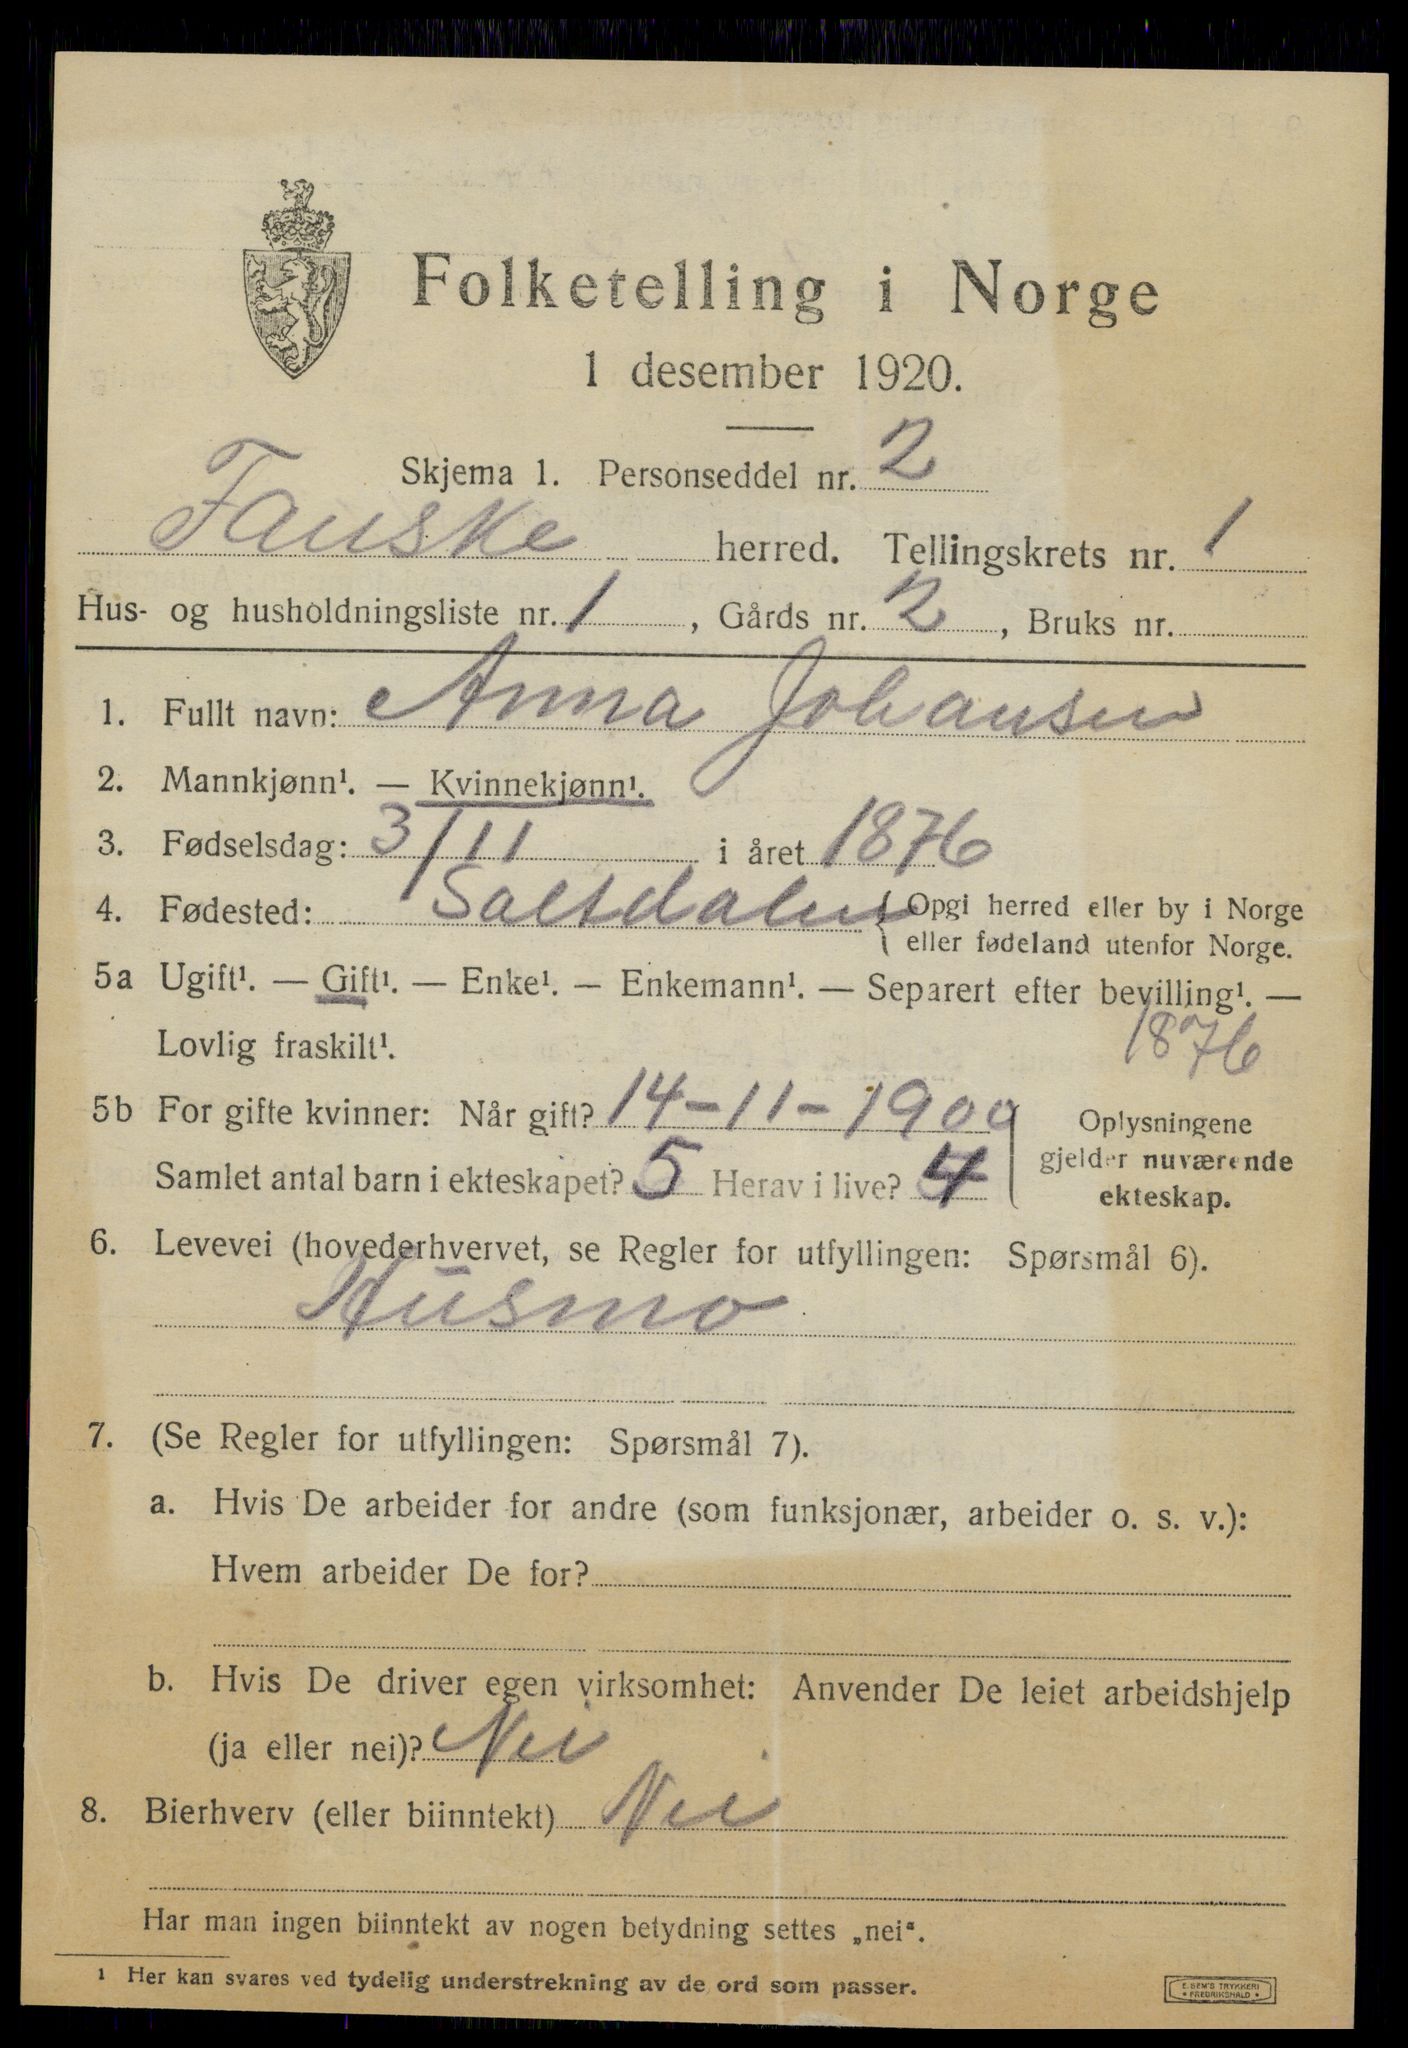 Folketelling i Norge
1 desember 1920.
Skjema 1. Personseddel nr. 2
Fauske herred. Tellingskrets nr. 1
Hus- og husholdningsliste nr. 1, Gårds nr. 2, Bruks nr.
1. Fullt navn: Anna Johansen
2. Mannkjønn¹. — Kvinnekjønn¹.
3. Fødselsdag: 3/11 i året 1876
4. Fødested: Saltdalen { Opgi herred eller by i Norge
eller fødeland utenfor Norge.
5a Ugift¹. — Gift¹. — Enke¹. — Enkemann¹. — Separert efter bevilling¹. —
Lovlig fraskilt¹. 1876
5b For gifte kvinner: Når gift? 14-11-1900 Oplysningene
gjelder nuværende
Samlet antal barn i ekteskapet? 5 Herav i live? 4 ekteskap.
6. Levevei (hovederhvervet, se Regler for utfyllingen: Spørsmål 6).
Husmo
7. (Se Regler for utfyllingen: Spørsmål 7).
a. Hvis De arbeider for andre (som funksjonær, arbeider o. s. v.):
Hvem arbeider De for?
b. Hvis De driver egen virksomhet: Anvender De leiet arbeidshjelp
(ja eller nei)? Nei
8. Bierhverv (eller biinntekt) Nei
Har man ingen biinntekt av nogen betydning settes „nei“.
1 Her kan svares ved tydelig understrekning av de ord som passer.
E. SEM'S TRYKKERI
• FREDRIKSHALD •